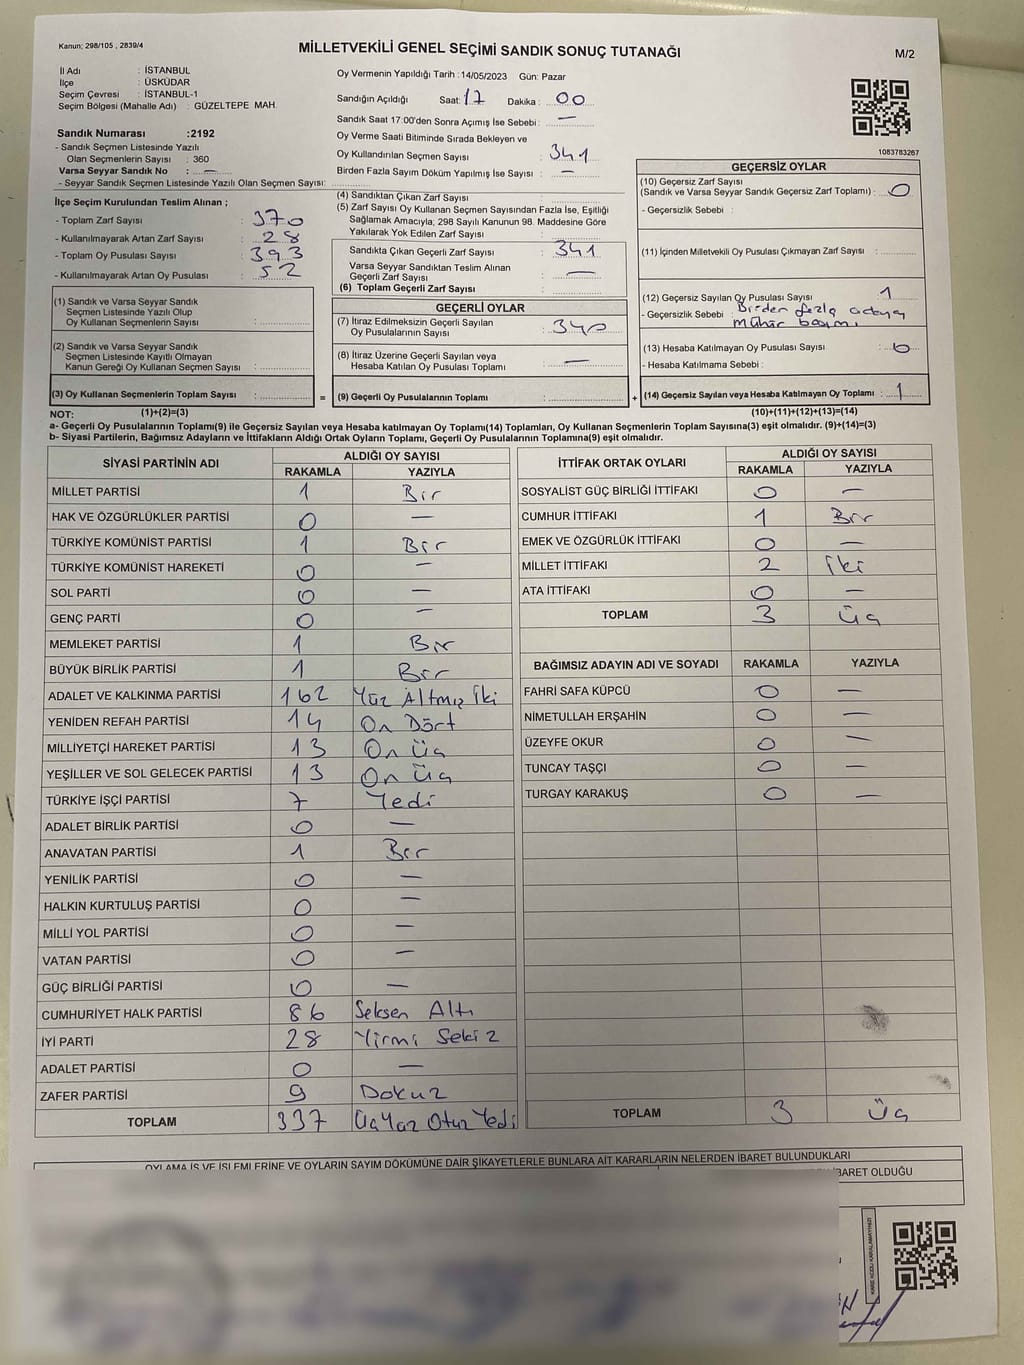 Kanun; 298/105 , 2839/4
MİLLETVEKİLİ GENEL SEÇİMİ SANDIK SONUÇ TUTANAĞI
M/2
İl Adı : İSTANBUL
İlçe : ÜSKÜDAR
Seçim Çevresi : İSTANBUL-1
Seçim Bölgesi (Mahalle Adı) : GÜZELTEPE MAH.
Oy Vermenin Yapıldığı Tarih : 14/05/2023 Gün: Pazar
Sandığın Açıldığı Saat: 17 Dakika : 00
Sandık Saat 17:00'den Sonra Açımış İse Sebebi : —
Oy Verme Saati Bitiminde Sırada Bekleyen ve
Oy Kullandırılan Seçmen Sayısı : 341
Birden Fazla Sayım Döküm Yapılmış İse Sayısı : —
1083783267
Sandık Numarası :2192
- Sandık Seçmen Listesinde Yazılı
Olan Seçmenlerin Sayısı : 360
Varsa Seyyar Sandık No : —
- Seyyar Sandık Seçmen Listesinde Yazılı Olan Seçmen Sayısı:
İlçe Seçim Kurulundan Teslim Alınan ;
- Toplam Zarf Sayısı : 370
- Kullanılmayarak Artan Zarf Sayısı : 28
- Toplam Oy Pusulası Sayısı : 393
- Kullanılmayarak Artan Oy Pusulası : 52
(1) Sandık ve Varsa Seyyar Sandık
Seçmen Listesinde Yazılı Olup
Oy Kullanan Seçmenlerin Sayısı :
(2) Sandık ve Varsa Seyyar Sandık
Seçmen Listesinde Kayıtlı Olmayan
Kanun Gereği Oy Kullanan Seçmen Sayısı :
(3) Oy Kullanan Seçmenlerin Toplam Sayısı : =
(4) Sandıktan Çıkan Zarf Sayısı :
(5) Zarf Sayısı Oy Kullanan Seçmen Sayısından Fazla İse, Eşitliği
Sağlamak Amacıyla; 298 Sayılı Kanunun 98. Maddesine Göre
Yakılarak Yok Edilen Zarf Sayısı :
Sandıkta Çıkan Geçerli Zarf Sayısı : 341
Varsa Seyyar Sandıktan Teslim Alınan
Geçerli Zarf Sayısı : —
(6) Toplam Geçerli Zarf Sayısı :
GEÇERLİ OYLAR
(7) İtiraz Edilmeksizin Geçerli Sayılan
Oy Pusulalarının Sayısı : 340
(8) İtiraz Üzerine Geçerli Sayılan veya
Hesaba Katılan Oy Pusulası Toplamı : —
(9) Geçerli Oy Pusulalarının Toplamı : +
GEÇERSİZ OYLAR
(10) Geçersiz Zarf Sayısı
(Sandık ve Varsa Seyyar Sandık Geçersiz Zarf Toplamı) : 0
- Geçersizlik Sebebi :
(11) İçinden Milletvekili Oy Pusulası Çıkmayan Zarf Sayısı :
(12) Geçersiz Sayılan Oy Pusulası Sayısı : 1
- Geçersizlik Sebebi : Birden fazla adaya
mühür basımı
(13) Hesaba Katılmayan Oy Pusulası Sayısı : 0
- Hesaba Katılmama Sebebi :
(14) Geçersiz Sayılan veya Hesaba Katılmayan Oy Toplamı : 1
NOT: (1)+(2)=(3) (10)+(11)+(12)+(13)=(14)
a- Geçerli Oy Pusulalarının Toplamı(9) ile Geçersiz Sayılan veya Hesaba katılmayan Oy Toplamı(14) Toplamları, Oy Kullanan Seçmenlerin Toplam Sayısına(3) eşit olmalıdır. (9)+(14)=(3)
b- Siyasi Partilerin, Bağımsız Adayların ve İttifakların Aldığı Ortak Oyların Toplamı, Geçerli Oy Pusulalarının Toplamına(9) eşit olmalıdır.
SİYASİ PARTİNİN ADI ALDIĞI OY SAYISI
RAKAMLA YAZIYLA
MİLLET PARTİSİ 1 Bir
HAK VE ÖZGÜRLÜKLER PARTİSİ 0 —
TÜRKİYE KOMÜNİST PARTİSİ 1 Bir
TÜRKİYE KOMÜNİST HAREKETİ 0 —
SOL PARTİ 0 —
GENÇ PARTİ 0 —
MEMLEKET PARTİSİ 1 Bir
BÜYÜK BİRLİK PARTİSİ 1 Bir
ADALET VE KALKINMA PARTİSİ 162 Yüz Altmış İki
YENİDEN REFAH PARTİSİ 14 On Dört
MİLLİYETÇİ HAREKET PARTİSİ 13 On Üç
YEŞİLLER VE SOL GELECEK PARTİSİ 13 On Üç
TÜRKİYE İŞÇİ PARTİSİ 7 Yedi
ADALET BİRLİK PARTİSİ 0 —
ANAVATAN PARTİSİ 1 Bir
YENİLİK PARTİSİ 0 —
HALKIN KURTULUŞ PARTİSİ 0 —
MİLLİ YOL PARTİSİ 0 —
VATAN PARTİSİ 0 —
GÜÇ BİRLİĞİ PARTİSİ 0 —
CUMHURİYET HALK PARTİSİ 86 Seksen Altı
İYİ PARTİ 28 Yirmi Sekiz
ADALET PARTİSİ 0 —
ZAFER PARTİSİ 9 Dokuz
TOPLAM 337 Üç Yüz Otuz Yedi
İTTİFAK ORTAK OYLARI ALDIĞI OY SAYISI
RAKAMLA YAZIYLA
SOSYALİST GÜÇ BİRLİĞİ İTTİFAKI 0 —
CUMHUR İTTİFAKI 1 Bir
EMEK VE ÖZGÜRLÜK İTTİFAKI 0 —
MİLLET İTTİFAKI 2 İki
ATA İTTİFAKI 0 —
TOPLAM 3 Üç
BAĞIMSIZ ADAYIN ADI VE SOYADI RAKAMLA YAZIYLA
FAHRİ SAFA KÜPCÜ 0 —
NİMETULLAH ERŞAHİN 0 —
ÜZEYFE OKUR 0 —
TUNCAY TAŞÇI 0 —
TURGAY KARAKUŞ 0 —
TOPLAM 3 Üç
OYLAMA İŞ VE İŞLEMLERİNE VE OYLARIN SAYIM DÖKÜMÜNE DAİR ŞİKAYETLERLE BUNLARA AİT KARARLARIN NELERDEN İBARET BULUNDUKLARI
İBARET OLDUĞU
KARE KODU KARALAMAYINIZ!